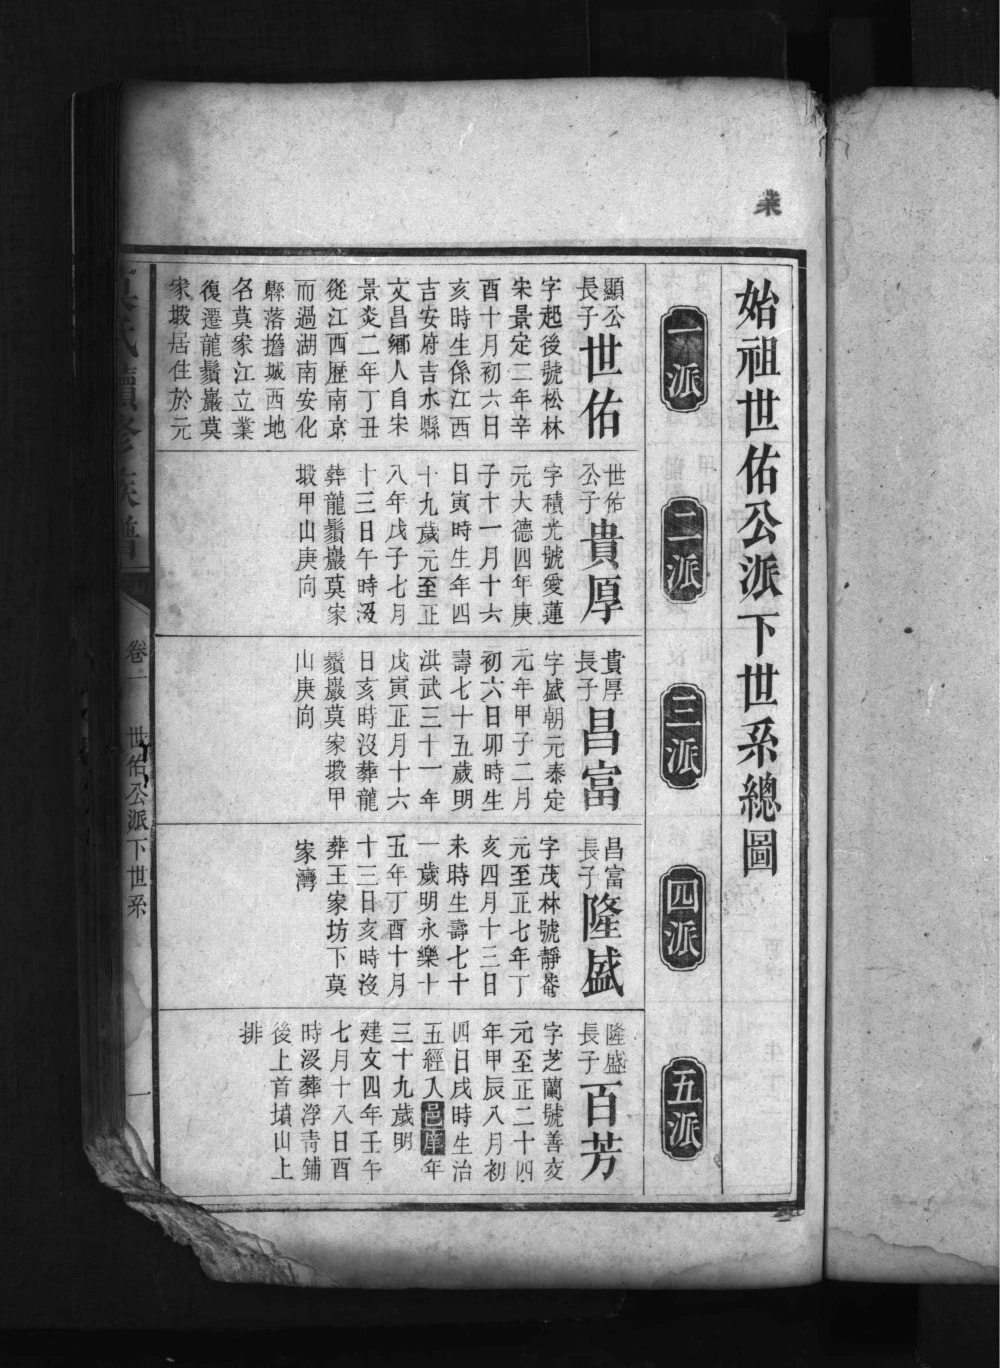 業
始祖世佑公派下世系總圖
一派
二派
三派
四派
五派
顯公
長子
世佑
字起後號松林
宋景定二年辛
酉十月初六日
亥時生係江西
吉安府吉水縣
文昌鄉人自宋
景炎二年丁丑
從江西歷南京
而過湖南安化
驛落擔城西地
名莫家江立業
復遷龍鬚巖莫
家塅居住於元
世佑
公子
貴厚
字積光號愛蓮
元大德四年庚
子十一月十六
日寅時生年四
十九歲元至正
八年戊子七月
十三日午時沒
葬龍鬚巖莫家
塅甲山庚向
貴厚
長子
昌富
字盛朝元泰定
元年甲子二月
初六日卯時生
壽七十五歲明
洪武三十一年
戊寅正月十六
日亥時沒葬龍
鬚巖莫家塅甲
山庚向
昌富
長子
隆盛
字茂林號靜菴
元至正七年丁
亥四月十三日
未時生壽七十
一歲明永樂十
五年丁酉十月
十三日亥時沒
葬王家坊下莫
家灣
隆盛
長子
百芳
字芝蘭號善友
元至正二十四
年甲辰八月初
四日戌時生治
五經入邑庠年
三十九歲明
建文四年壬午
七月十八日酉
時沒葬浮青鋪
後上首墳山上
排
莫氏續修族譜
卷一
世佑公派下世系
一